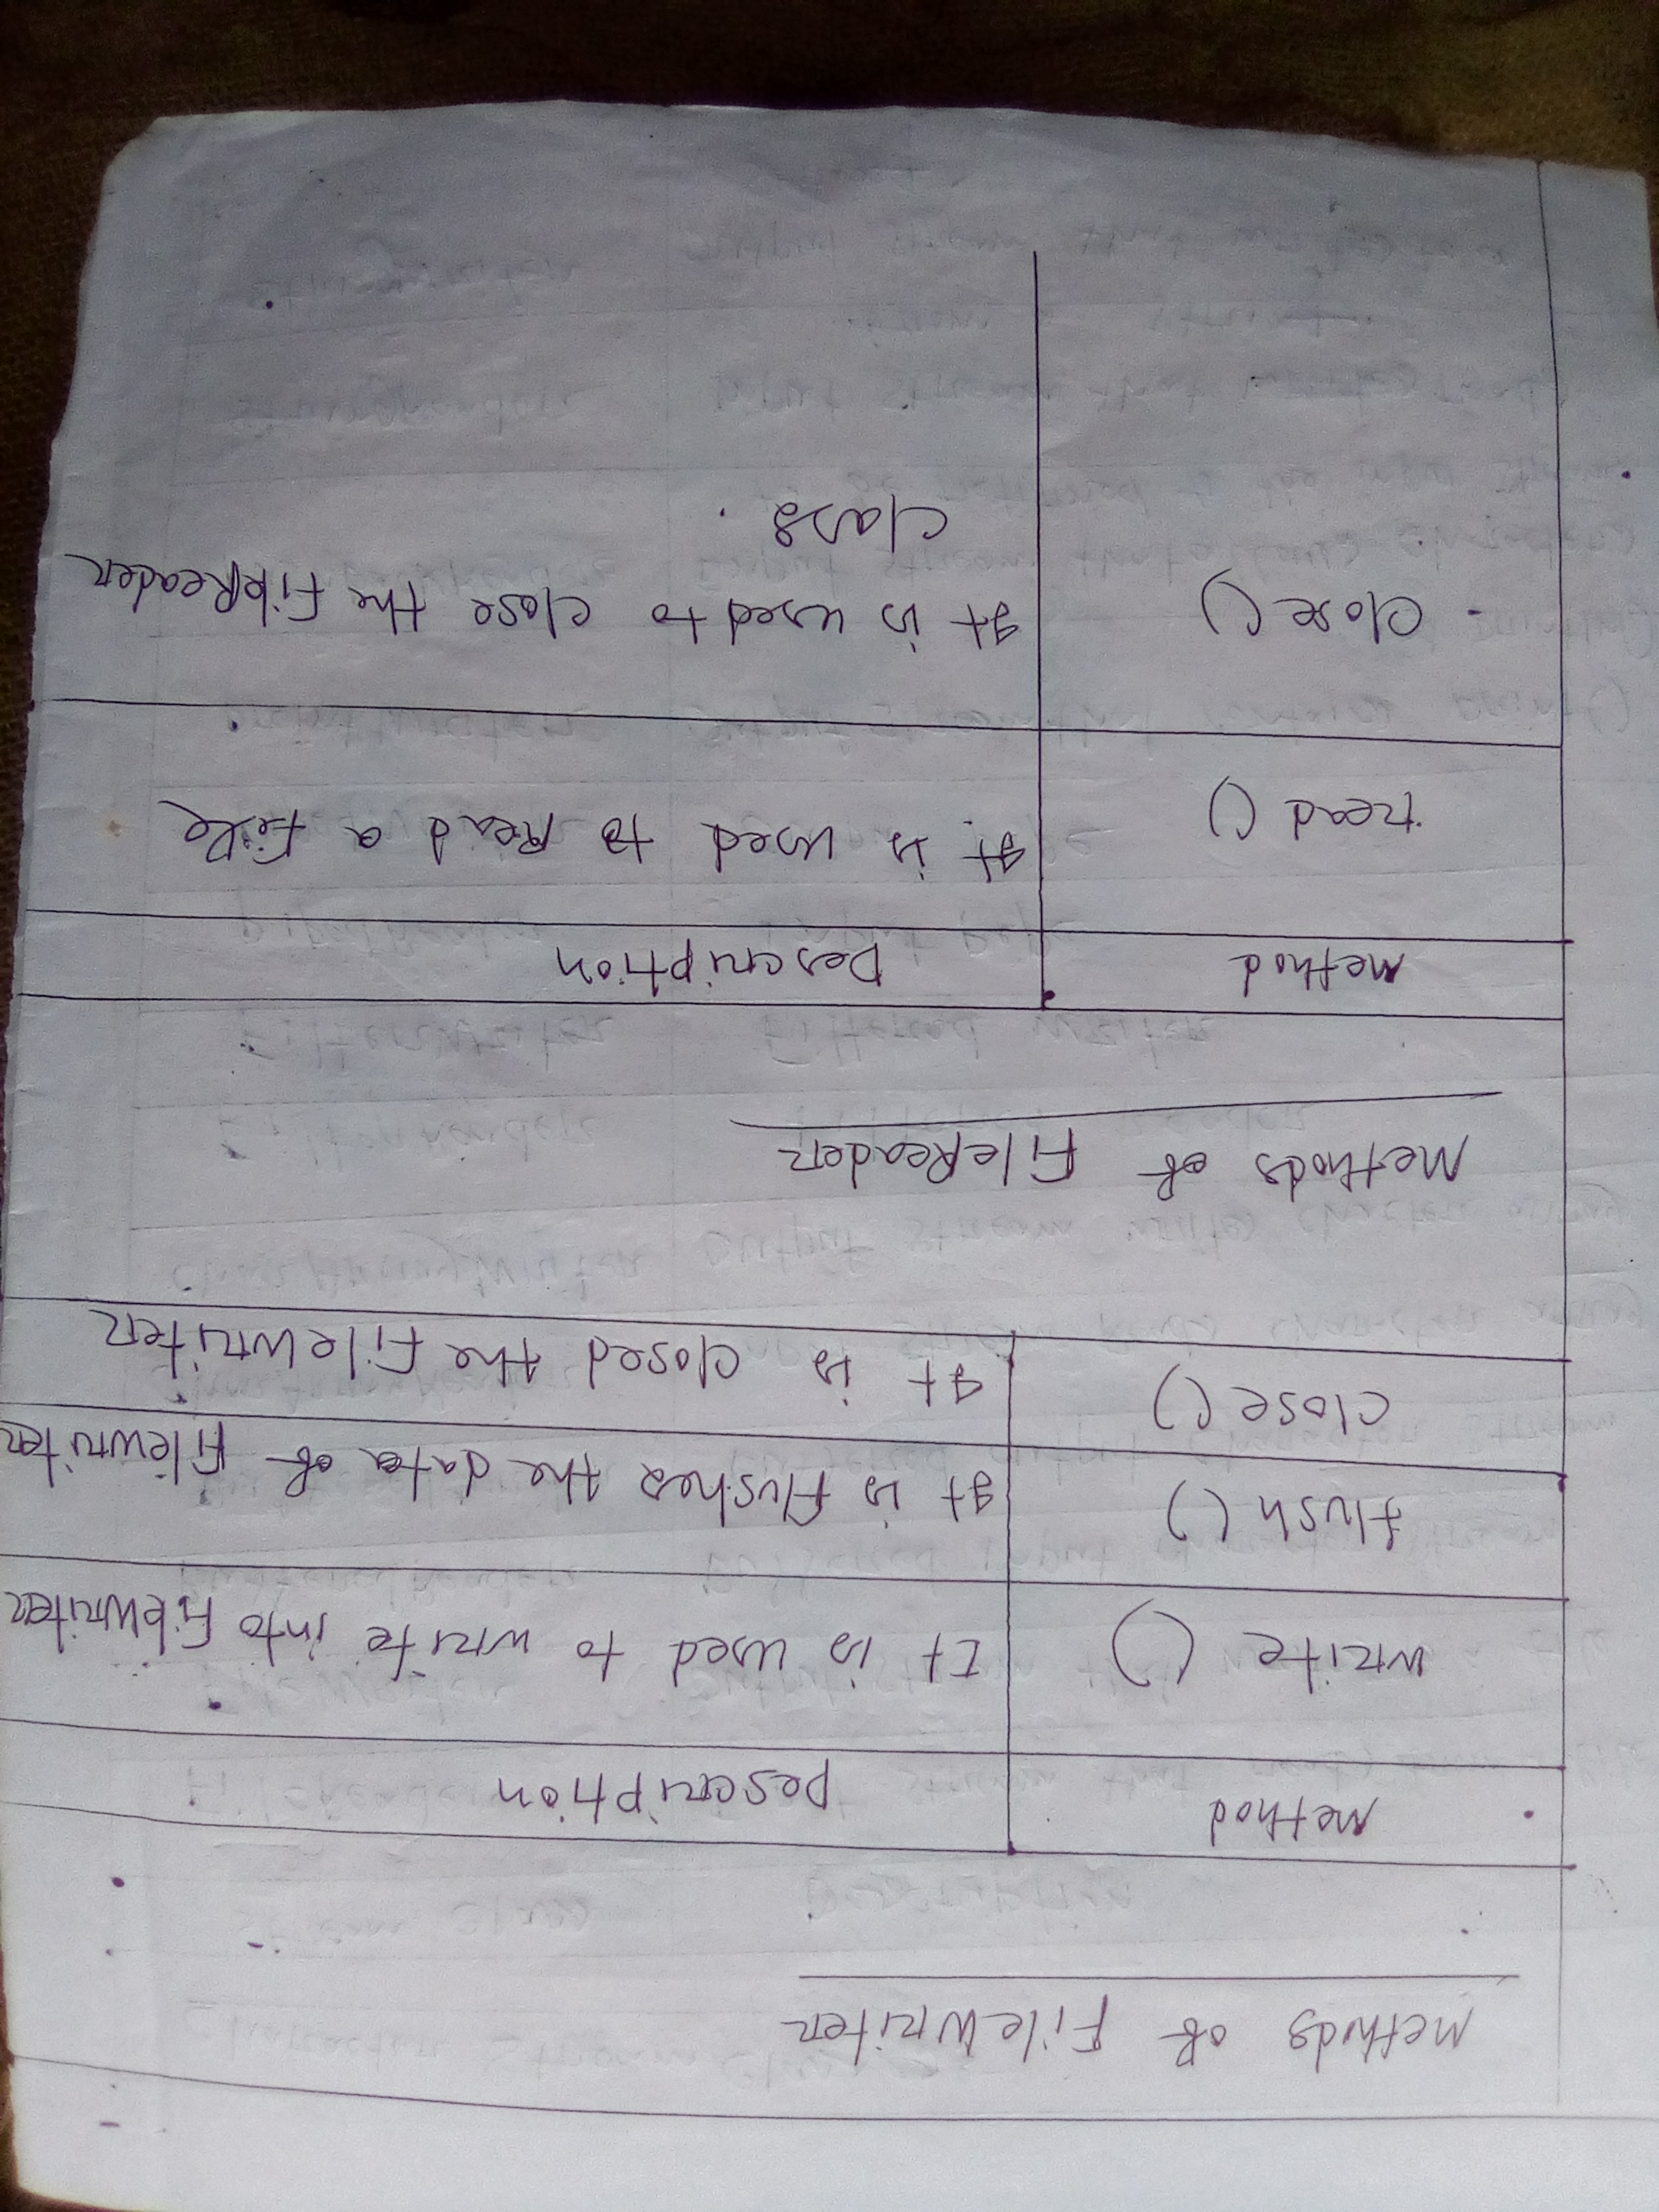 Methods of FileWriter
Method Description
write () It is used to write into FileWriter
flush () It is flushes the data of Filewriter
close () It is closed the FileWriter
Methods of FileReader
Method Description
read () It is used to Read a File
Close () It is used to close the FileReader
class.